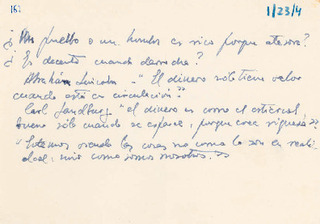 1/23/4
¿Un pueblo o un hombre es rico porque atesora?
¿Es decente cuando derrocha?
Abrahán Lincoln - "El dinero sólo tiene valor
cuando está en circulación".
Carl Sandburg "el dinero es como el estiércol
bueno sólo cuando se esparce, porque crea riqueza".
"Estamos viendo las cosas no como lo son en reali
dad, sino como somos nosotros."